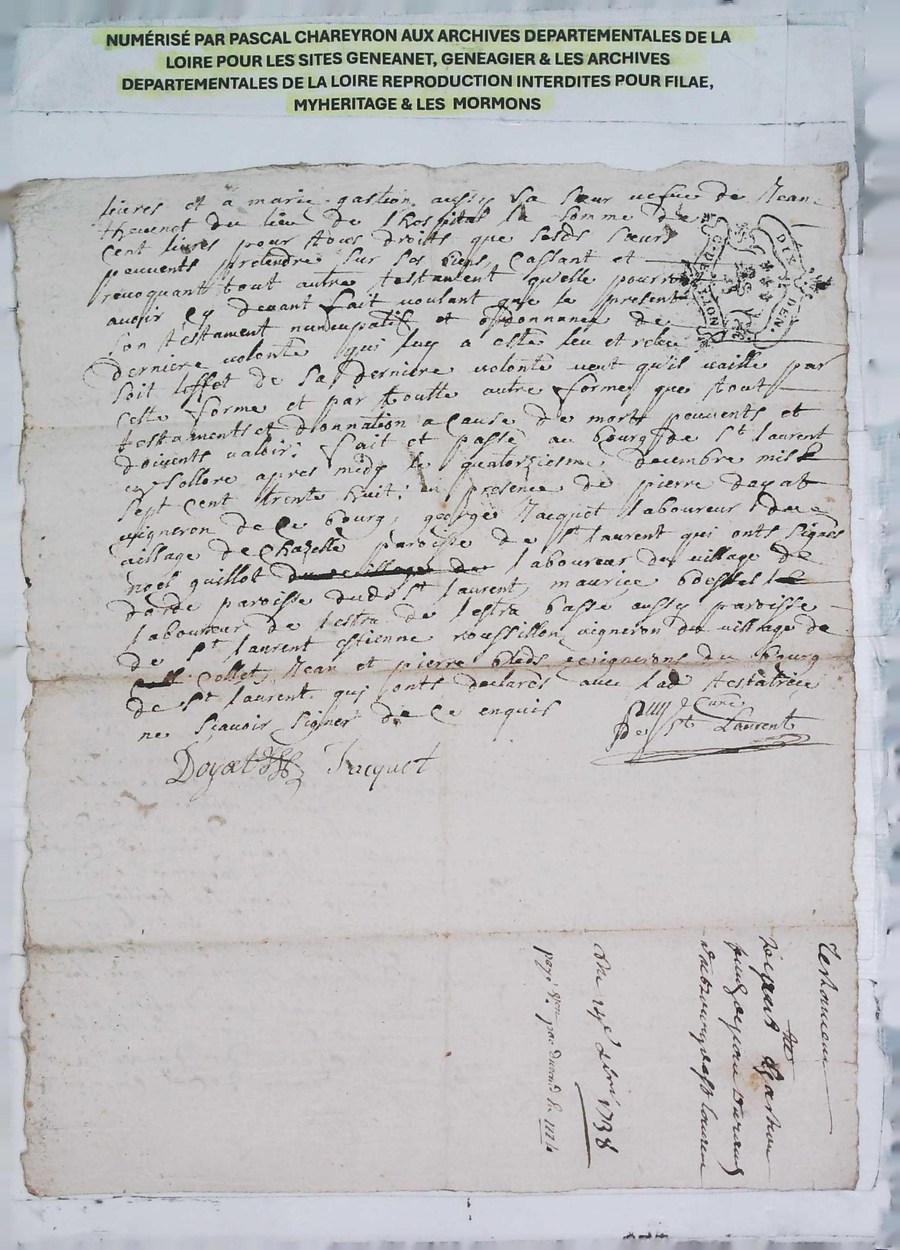 NUMÉRISÉ PAR PASCAL CHAREYRON AUX ARCHIVES DEPARTEMENTALES DE LA
LOIRE POUR LES SITES GENEANET, GENEAGIER & LES ARCHIVES
DEPARTEMENTALES DE LA LOIRE REPRODUCTION INTERDITES POUR FILAE,
MYHERITAGE & LES MORMONS
livres et a marie gastion aussy sa sœur vefve de Jean
thevenot du lieu de lhospital la somme de
cent livres pour tous droits que sesds sœurs
peuvents pretendre sur ses biens, Cassant et
revoquant tout autre testament qu'elle pourroit
avoir cy devant fait voulant que le present
son testament nuncupatif et ordonnance de
derniere volonté qui luy a esté leu et releu
soit leffet de sa derniere volonté veut qu'il vaille par
cette forme et par toutte autre forme que tout
testaments et donnation a cause de mort peuvents et
doivents valoir. fait et passé au bourg de st laurent
en sollore apres midy le quatorziesme decembre mil
sept cent trente huit. en presence de pierre doyat
vigneron de ce bourg, george Jacquet laboureur du
village de Chazelle paroisse de st laurent qui onts signés
noel guillot laboureur du village de
paroisse dudt st laurent, maurice
laboureur de lestra de lestra basse aussy paroisse
de st laurent estienne roussillon vigneron du village de
Collet Jean et pierre vignerons du bourg
de st laurent qui onts declarés avec lad testatrice
ne scavoir signer de ce enquis
Curé
de st Laurent
Doyat Jacquet
DIX DEN.
Testament
1738